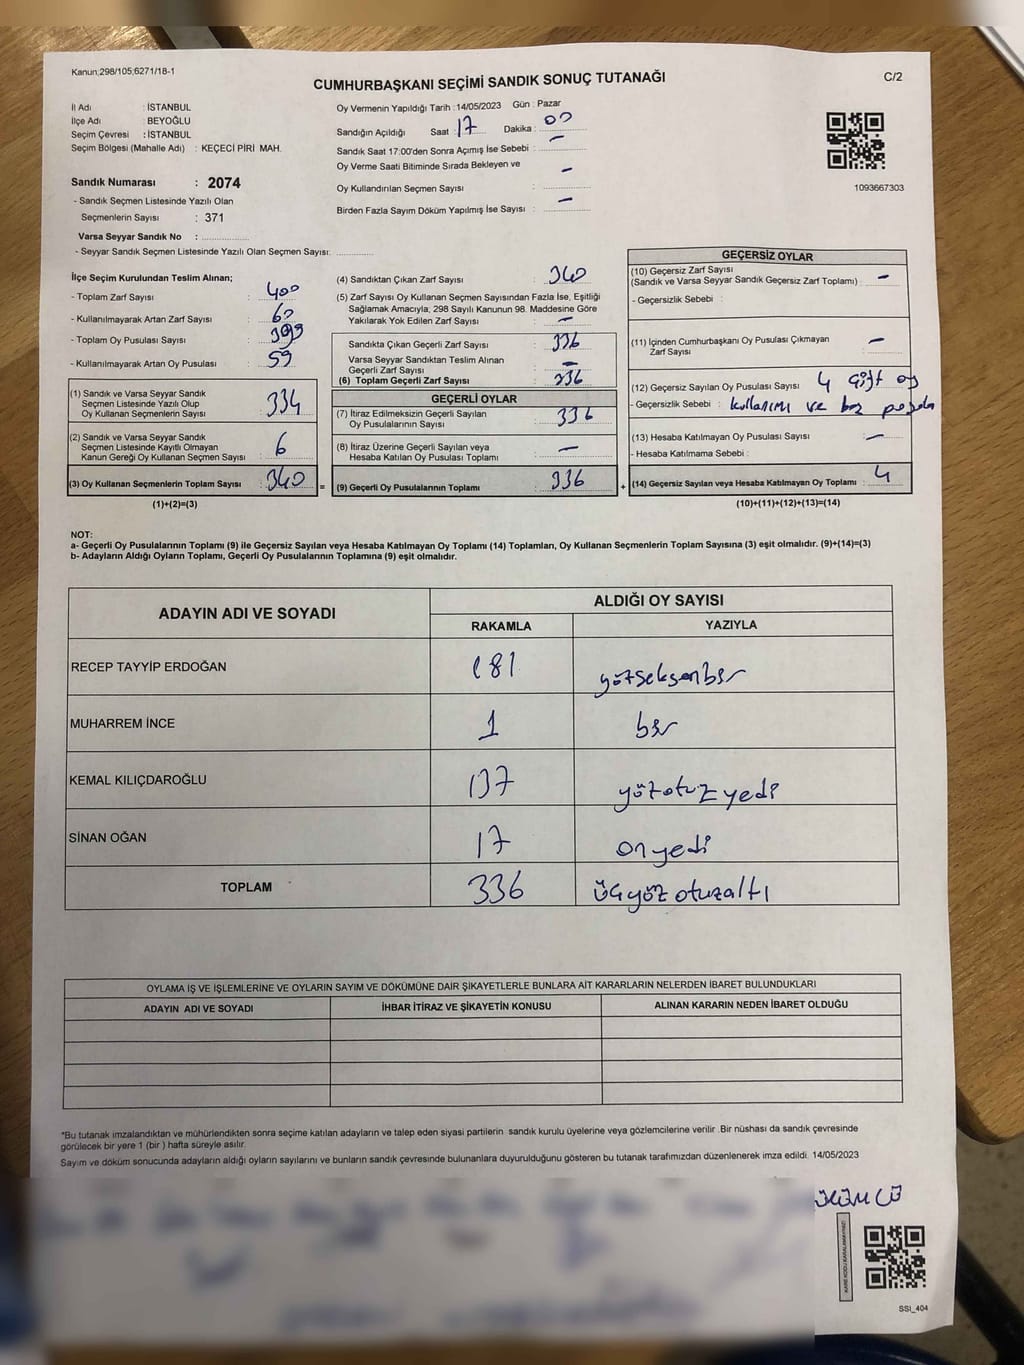 Kanun;298/105;6271/18-1
CUMHURBAŞKANI SEÇİMİ SANDIK SONUÇ TUTANAĞI
C/2
İl Adı : İSTANBUL
İlçe Adı : BEYOĞLU
Seçim Çevresi : İSTANBUL
Seçim Bölgesi (Mahalle Adı) : KEÇECİ PİRİ MAH.
Sandık Numarası : 2074
- Sandık Seçmen Listesinde Yazılı Olan
Seçmenlerin Sayısı : 371
Varsa Seyyar Sandık No :
- Seyyar Sandık Seçmen Listesinde Yazılı Olan Seçmen Sayısı:
Oy Vermenin Yapıldığı Tarih :14/05/2023 Gün : Pazar
Sandığın Açıldığı Saat : 17 Dakika : 00
Sandık Saat 17:00'den Sonra Açımış İse Sebebi : –
Oy Verme Saati Bitiminde Sırada Bekleyen ve
Oy Kullandırılan Seçmen Sayısı : –
Birden Fazla Sayım Döküm Yapılmış İse Sayısı : –
1093667303
İlçe Seçim Kurulundan Teslim Alınan;
- Toplam Zarf Sayısı : 400
- Kullanılmayarak Artan Zarf Sayısı : 60
- Toplam Oy Pusulası Sayısı : 399
- Kullanılmayarak Artan Oy Pusulası : 59
(1) Sandık ve Varsa Seyyar Sandık
Seçmen Listesinde Yazılı Olup
Oy Kullanan Seçmenlerin Sayısı : 334
(2) Sandık ve Varsa Seyyar Sandık
Seçmen Listesinde Kayıtlı Olmayan
Kanun Gereği Oy Kullanan Seçmen Sayısı : 6
(3) Oy Kullanan Seçmenlerin Toplam Sayısı : 340
(1)+(2)=(3)
=
(4) Sandıktan Çıkan Zarf Sayısı : 340
(5) Zarf Sayısı Oy Kullanan Seçmen Sayısından Fazla İse, Eşitliği
Sağlamak Amacıyla; 298 Sayılı Kanunun 98. Maddesine Göre
Yakılarak Yok Edilen Zarf Sayısı : –
Sandıkta Çıkan Geçerli Zarf Sayısı : 336
Varsa Seyyar Sandıktan Teslim Alınan
Geçerli Zarf Sayısı : –
(6) Toplam Geçerli Zarf Sayısı : 336
GEÇERLİ OYLAR
(7) İtiraz Edilmeksizin Geçerli Sayılan
Oy Pusulalarının Sayısı : 336
(8) İtiraz Üzerine Geçerli Sayılan veya
Hesaba Katılan Oy Pusulası Toplamı : –
(9) Geçerli Oy Pusulalarının Toplamı : 336
+
GEÇERSİZ OYLAR
(10) Geçersiz Zarf Sayısı
(Sandık ve Varsa Seyyar Sandık Geçersiz Zarf Toplamı) : –
- Geçersizlik Sebebi :
(11) İçinden Cumhurbaşkanı Oy Pusulası Çıkmayan
Zarf Sayısı : –
(12) Geçersiz Sayılan Oy Pusulası Sayısı : 4 Çift oy
- Geçersizlik Sebebi : kullanımı ve boş pusula
(13) Hesaba Katılmayan Oy Pusulası Sayısı : –
- Hesaba Katılmama Sebebi :
(14) Geçersiz Sayılan veya Hesaba Katılmayan Oy Toplamı : 4
(10)+(11)+(12)+(13)=(14)
NOT:
a- Geçerli Oy Pusulalarının Toplamı (9) ile Geçersiz Sayılan veya Hesaba Katılmayan Oy Toplamı (14) Toplamları, Oy Kullanan Seçmenlerin Toplam Sayısına (3) eşit olmalıdır. (9)+(14)=(3)
b- Adayların Aldığı Oyların Toplamı, Geçerli Oy Pusulalarının Toplamına (9) eşit olmalıdır.
ADAYIN ADI VE SOYADI
ALDIĞI OY SAYISI
RAKAMLA YAZIYLA
RECEP TAYYİP ERDOĞAN 181 yüzseksenbir
MUHARREM İNCE 1 bir
KEMAL KILIÇDAROĞLU 137 yüzotuzyedi
SİNAN OĞAN 17 onyedi
TOPLAM 336 üçyüz otuzaltı
OYLAMA İŞ VE İŞLEMLERİNE VE OYLARIN SAYIM VE DÖKÜMÜNE DAİR ŞİKAYETLERLE BUNLARA AİT KARARLARIN NELERDEN İBARET BULUNDUKLARI
ADAYIN ADI VE SOYADI İHBAR İTİRAZ VE ŞİKAYETİN KONUSU ALINAN KARARIN NEDEN İBARET OLDUĞU
*Bu tutanak imzalandıktan ve mühürlendikten sonra seçime katılan adayların ve talep eden siyasi partilerin sandık kurulu üyelerine veya gözlemcilerine verilir .Bir nüshası da sandık çevresinde
görülecek bir yere 1 (bir ) hafta süreyle asılır.
Sayım ve döküm sonucunda adayların aldığı oyların sayılarını ve bunların sandık çevresinde bulunanlara duyurulduğunu gösteren bu tutanak tarafımızdan düzenlenerek imza edildi. 14/05/2023
KARE KODU KARALAMAYINIZ!
SSI_404